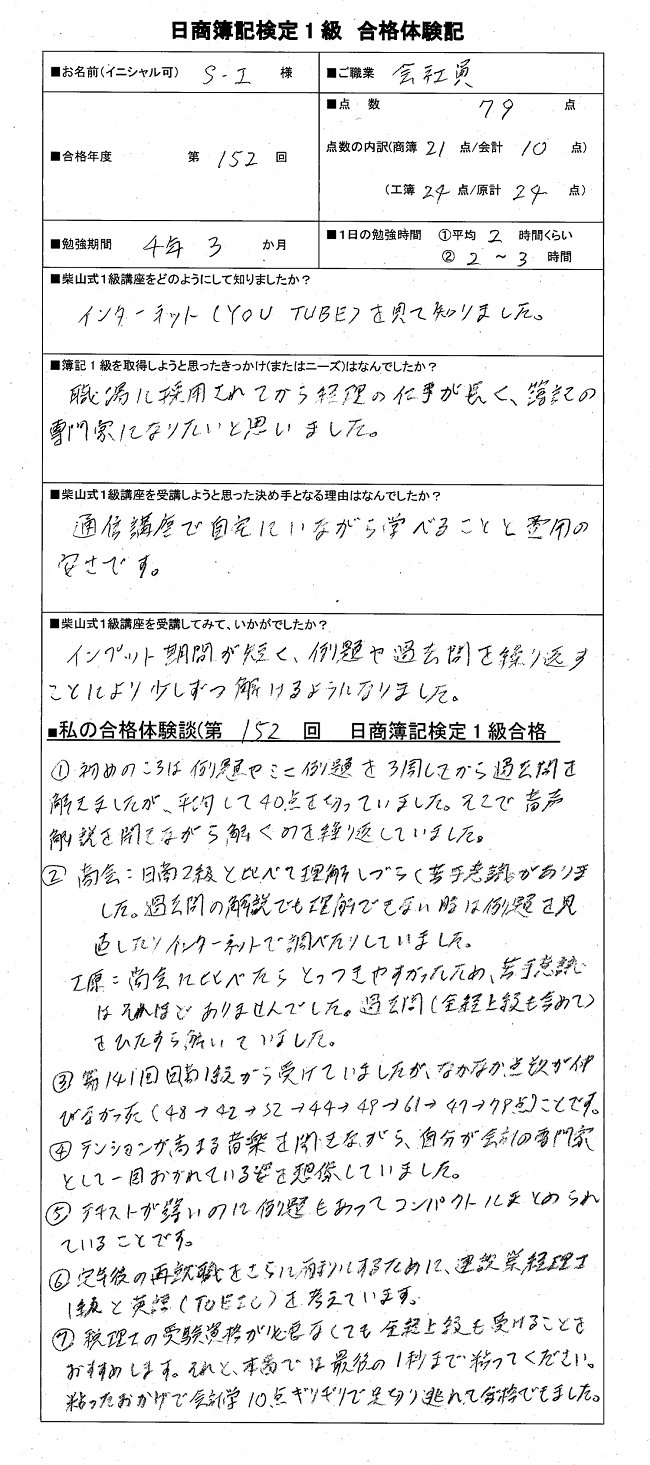 日商簿記検定1級 合格体験記
■お名前(イニシャル可) S-I 様
■ご職業 会社員
■合格年度 第 152 回
■点 数 79 点
点数の内訳(商簿 21 点/会計 10 点)
(工簿 24 点/原計 24 点)
■勉強期間 4年 3 か月
■1日の勉強時間 ①平均 2 時間くらい
② 2 ~ 3 時間
■柴山式1級講座をどのようにして知りましたか?
インターネット(YOU TUBE)を見て知りました。
■簿記1級を取得しようと思ったきっかけ(またはニーズ)はなんでしたか?
職場に採用されてから経理の仕事が長く、簿記の
専門家になりたいと思いました。
■柴山式1級講座を受講しようと思った決め手となる理由はなんでしたか?
通信講座で自宅にいながら学べることと費用の
安さです。
■柴山式1級講座を受講してみて、いかがでしたか?
インプット期間が短く、例題や過去問を繰り返す
ことにより少しずつ解けるようになりました。
■私の合格体験談(第 152 回 日商簿記検定1級合格
① 初めのころは例題やミニ例題を3周してから過去問を
解きましたが、平均して40点を切っていました。そこで音声
解説を聞きながら解くのを繰り返していました。
② 商会:日商2級と比べて理解しづらく苦手意識がありま
した。過去問の解説でも理解できない時は例題を見
直したりインターネットで調べたりしていました。
工原:商会に比べたらとっつきやすかったため、苦手意識
はそれほどありませんでした。過去問(全経上級も含めて)
をひたすら解いていました。
③ 第141回日商1級から受けていましたが、なかなか点数が伸
びなかった(48→42→52→44→49→61→47→79点)ことです。
④ テンションが高まる音楽を聞きながら、自分が会計の専門家
として一目おかれている姿を想像していました。
⑤ テキストが薄いのに例題もあってコンパクトにまとめられ
ていることです。
⑥ 定年後の再就職をさらに有利にするために、建設業経理士
1級と英語(TOEIC)を考えています。
⑦ 税理士の受験資格が必要なくても全経上級も受けることを
おすすめします。それと、本番では最後の1秒まで粘ってください。
粘ったおかげで会計学10点ギリギリで足切り逃れて合格できました。